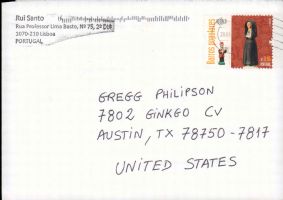 Rui Santo
Rua Professor Lima Basto, Nº 75, 2º Dto
1070-210 Lisboa
PORTUGAL
GREGG PHILIPSON
7802 GINKGO CV
AUSTIN, TX 78750-7817
UNITED STATES